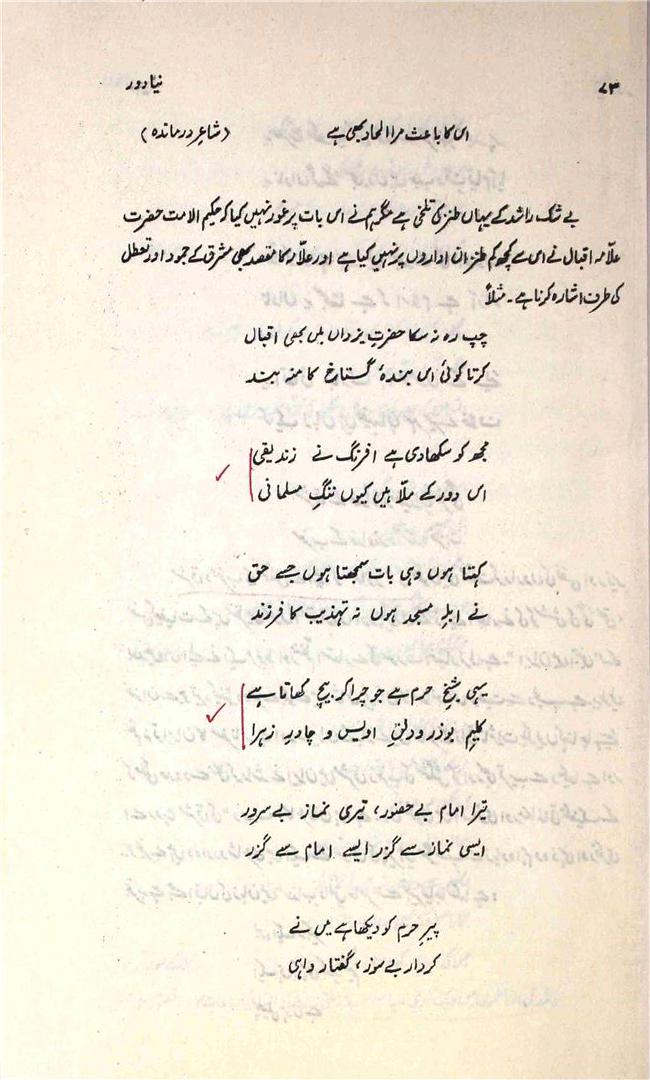 ۷۳ نیا دور
اس کا باعث مرا الحاد بھی ہے (شاعرِ درماندہ)
بے شک راشد کے یہاں طنز کی تلخی ہے مگر ہم نے اس بات پر غور نہیں کیا کہ حکیم الامت حضرت
علّامہ اقبال نے اس سے کچھ کم طنز ان اداروں پر نہیں کیا ہے اور علّامہ کا مقصد بھی مشرق کے جمود اور تعطل
کی طرف اشارہ کرنا ہے۔ مثلاً
چپ رہ نہ سکا حضرتِ یزداں میں بھی اقبال
کرتا کوئی اس بندۂ گستاخ کا منہ بند
مجھ کو سکھا دی ہے افرنگ نے زندیقی
اس دور کے ملّا ہیں کیوں ننگِ مسلمانی
کہتا ہوں وہی بات سمجھتا ہوں جسے حق
نے ابلہِ مسجد ہوں نہ تہذیب کا فرزند
یہی شیخِ حرم ہے جو چرا کر بیچ کھاتا ہے
کلیمِ بوذر و دلقِ اویس و چادرِ زہرا
تیرا امام بے حضور، تیری نماز بے سرور
ایسی نماز سے گزر ایسے امام سے گزر
پیرِ حرم کو دیکھا ہے میں نے
کردار بے سوز، گفتار واہی